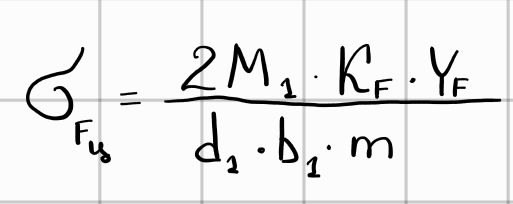 σ_{Fц} = \frac{2M_1 · K_F · Y_F}{d_1 · b_1 · m}